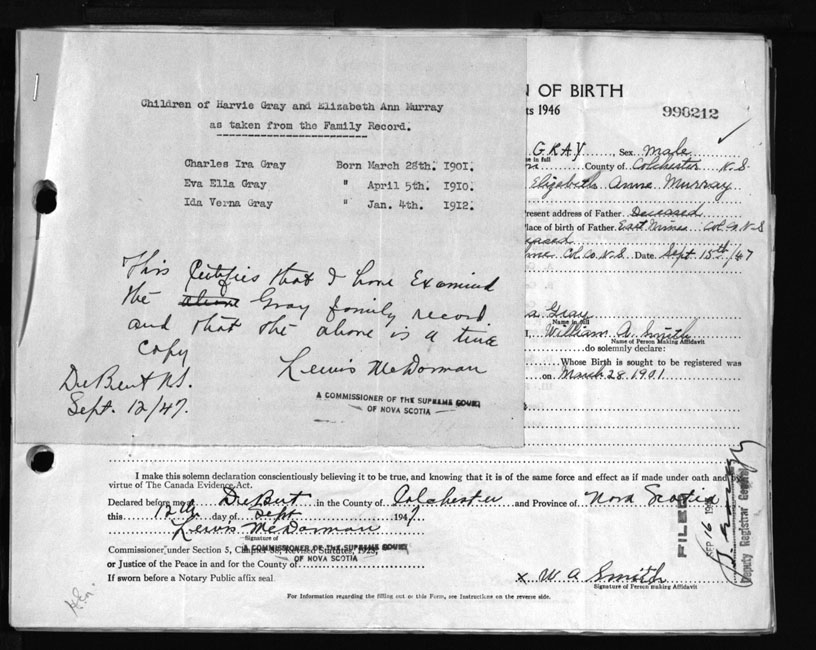 Children of Harvie Gray and Elizabeth Ann Murray
as taken from the Family Record.
Charles Ira Gray Born March 28th. 1901.
Eva Ella Gray " April 5th. 1910.
Ida Verna Gray " Jan. 4th. 1912.
This Certifies that I have Examined
the above Gray family record
and that the above is a true
Copy
Lewis McDorman
DeBert N.S.
Sept. 12/47.
A COMMISSIONER OF THE SUPREME COURT
OF NOVA SCOTIA
N OF BIRTH
ts 1946
990212
GRAY, Sex Male
e in full
County of Colchester N.S
Elizabeth Anne Murray
resent address of Father Deceased
lace of birth of Father East Mines Col. Co N.S
Col. Co. N.S. Date. Sept. 15th/47
a Gray
Name in full
William A. Smith
Name of Person Making Affidavit
do solemnly declare:
Whose Birth is sought to be registered was
on March 28. 1901
I make this solemn declaration conscientiously believing it to be true, and knowing that it is of the same force and effect as if made under oath and by
virtue of The Canada Evidence Act.
Declared before me at DeBert in the County of Colchester and Province of Nova Scotia
this 12th day of Sept 1947
Lewis McDorman
Signature of
Commissioner, under Section 5, Chapter 38, Revised Statutes, 1923,
A COMMISSIONER OF THE SUPREME COURT
OF NOVA SCOTIA
or Justice of the Peace in and for the County of
If sworn before a Notary Public affix seal
x W A Smith
Signature of Person making Affidavit
For Information regarding the filling out of this Form, see Instructions on the reverse side.
FILED
SEP 16
Deputy Registrar General